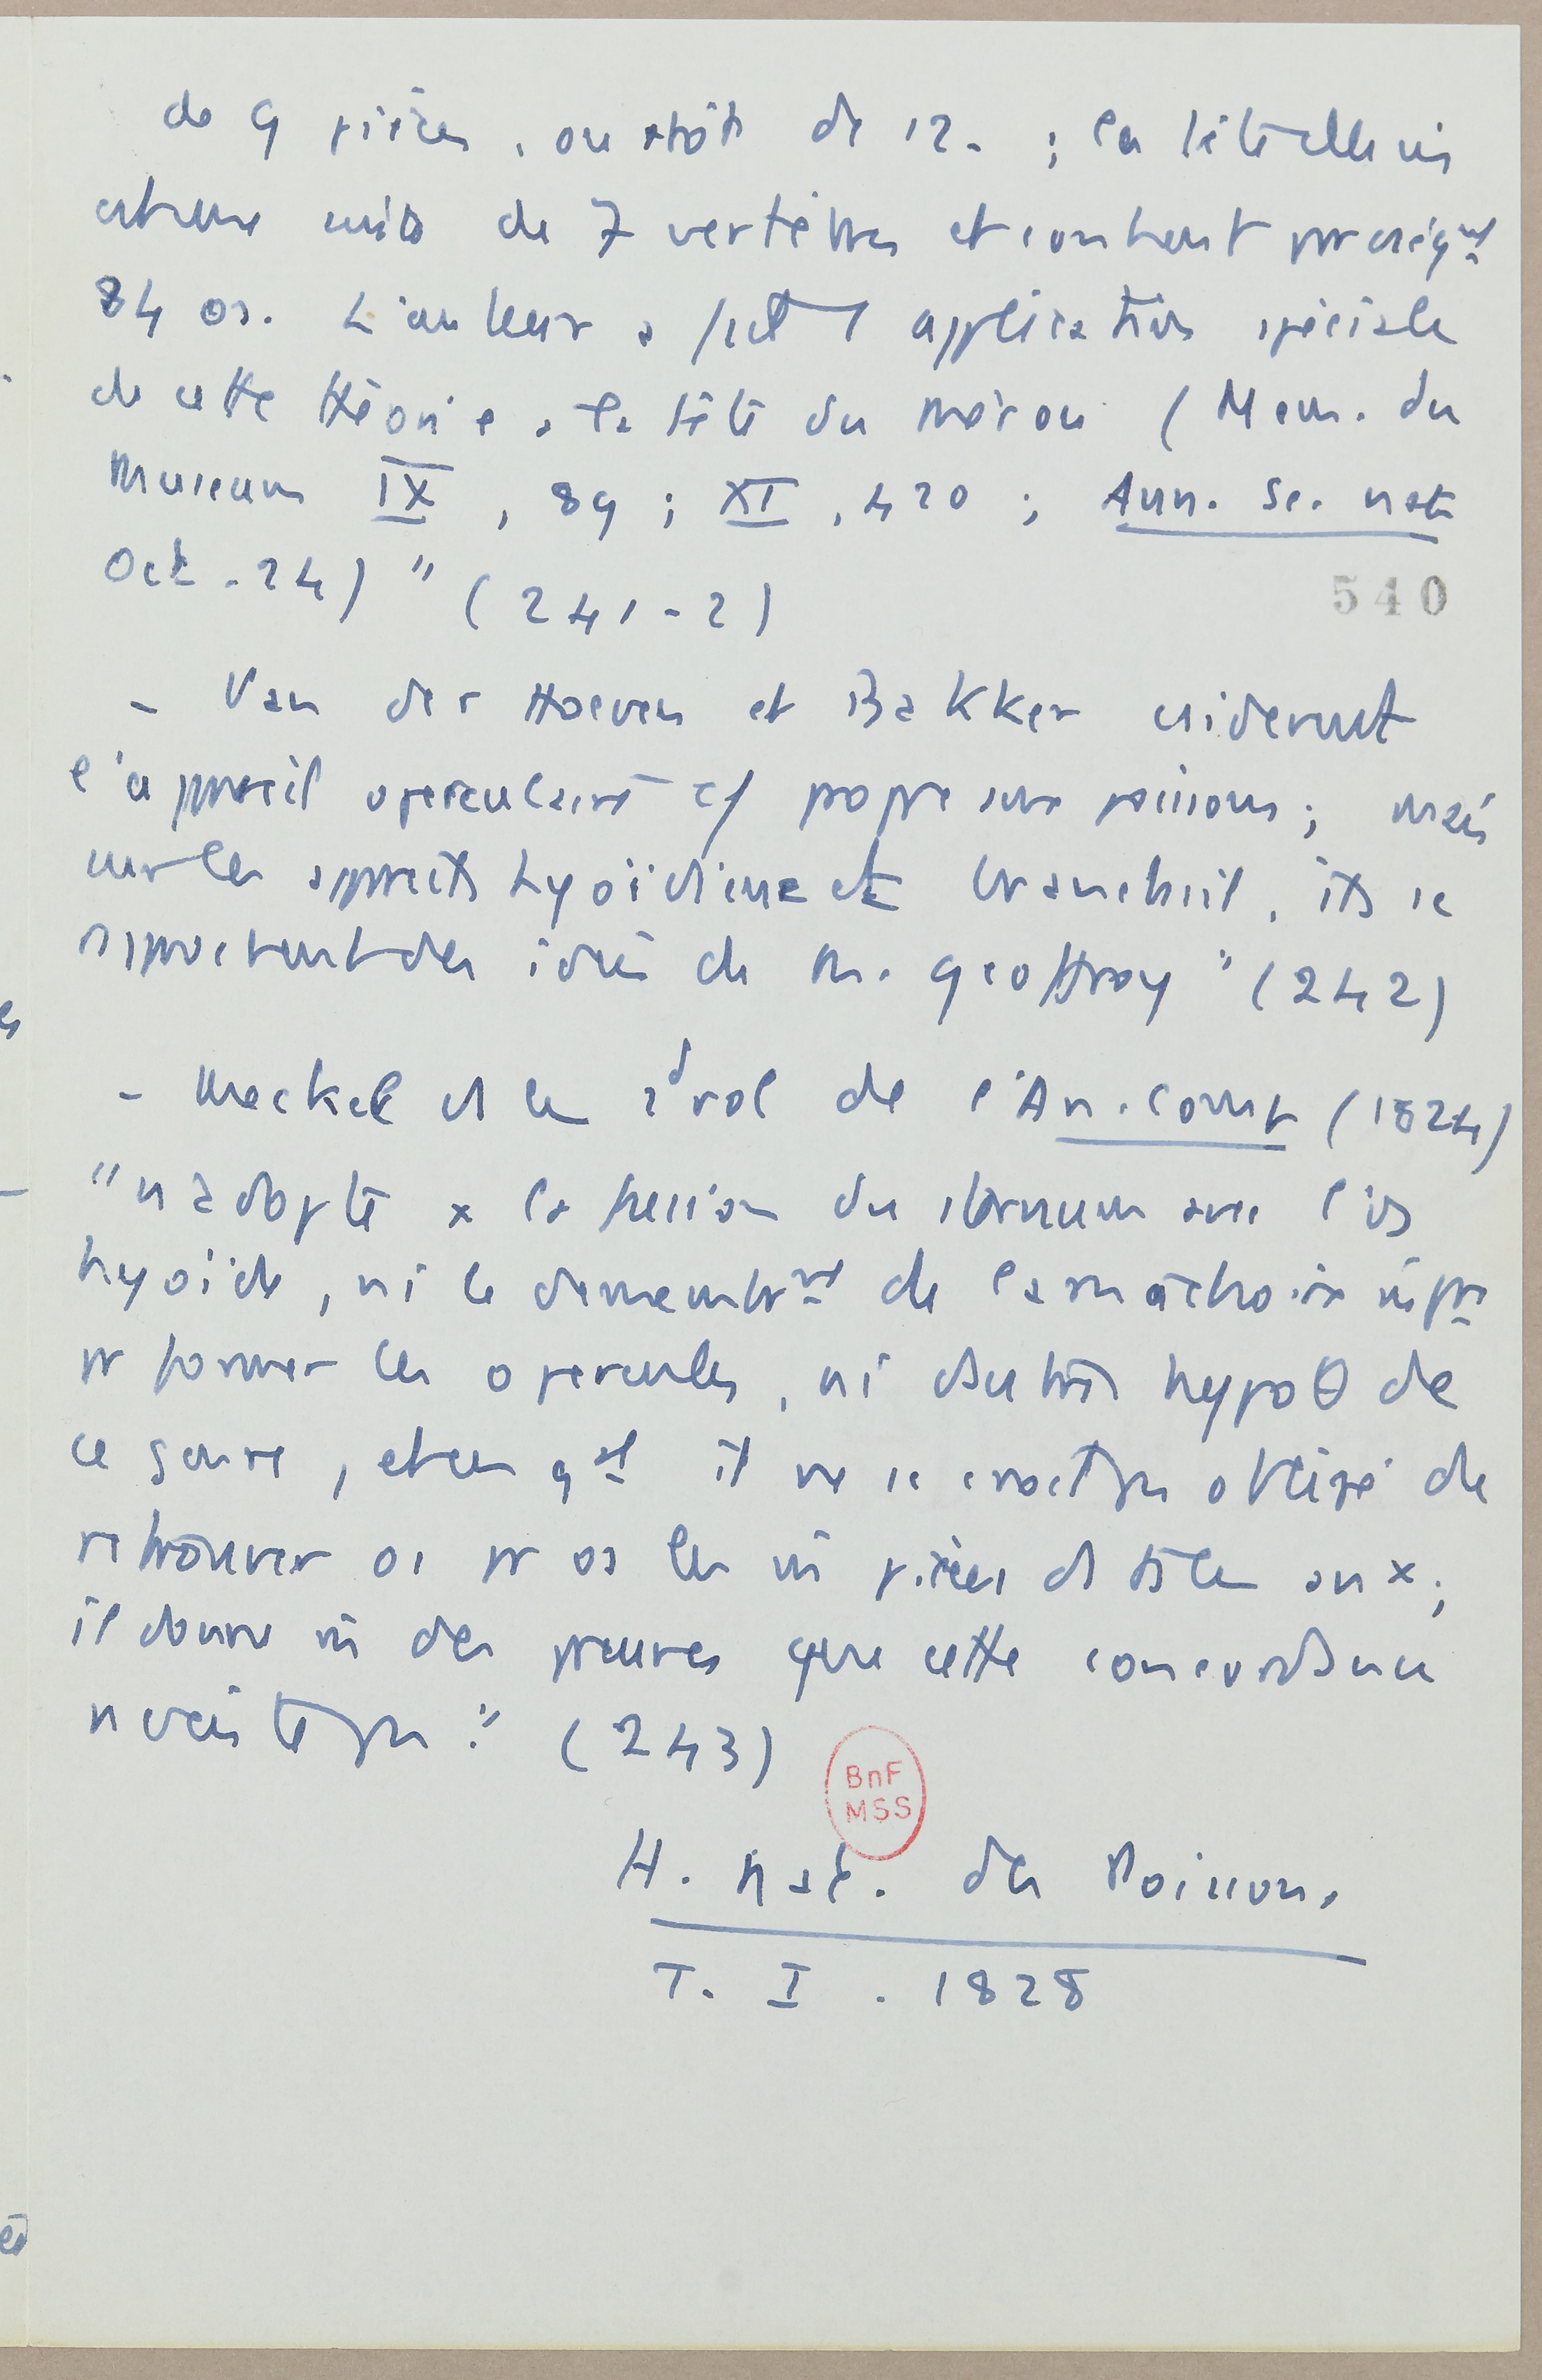 de 9 pièces, ou plutôt de 12. ; la tête elle mm
est une suite de 7 vertèbres et contient par csqt
84 os. L'auteur a fait 1 application spéciale
de cette théorie à la tête du Mérou (Mem. du
Museum IX, 89 ; XI, 420 ; Ann. Sc. nat
Oct. 24) " (241-2)
540
- Van der Hoeven et Bakker csiderent
l'appareil operculaire c/ propre aux poissons ; mais
sur les appareils hyoïdien et branchial, ils se
rapprochent des idées de M. Geoffroy " (242)
- Meckel ds le 2d vol de l'An. Comp (1824)
" n'adopte x la fusion du sternum avec l'os
hyoïde, ni le démembrmt de la mâchoire infre
pr former les opercules, ni d'autres hypoθ de
ce genre, et en gal il ne se croit pas obligé de
retrouver os pr os les mm pièces ds ts les anx ;
il donne mm des preuves que cette concordance
n'existe pas." (243)
BnF
MSS
H. Nat. des Poissons.
T. I . 1828